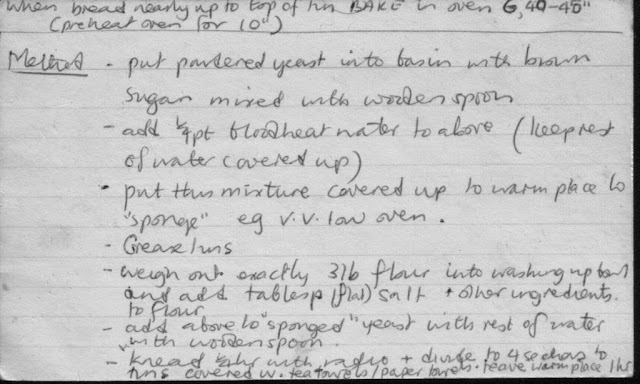 when bread nearly up to top of tin BAKE in oven 6, 40-45"
(preheat oven for 10")
Method - put powdered yeast into basin with brown
sugar mixed with wooden spoon
- add ¼pt bloodheat water to above (keep rest
of water covered up)
- put this mixture covered up to warm place to
"sponge" eg v.v. low oven.
- Grease tins
- weigh out exactly 3lb flour into washing up bowl
and add tablesp (flat) salt + other ingredients.
to flour
- add above to "sponged" yeast with rest of water
with wooden spoon.
- knead ½hr with radio + divide to 4 sections to
tins covered w. teatowels/paper towels. leave warm place 1hr